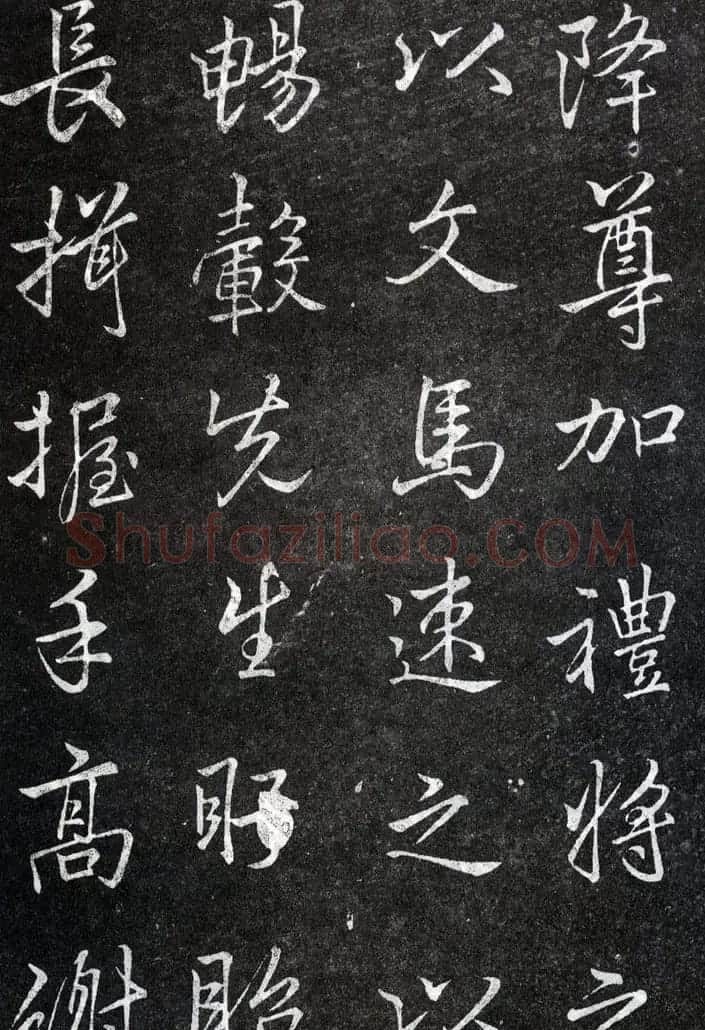 降尊加禮將之
以文馬速之以
暢轂先生盱眙
長揖握手高謝
Shufaziliao.COM